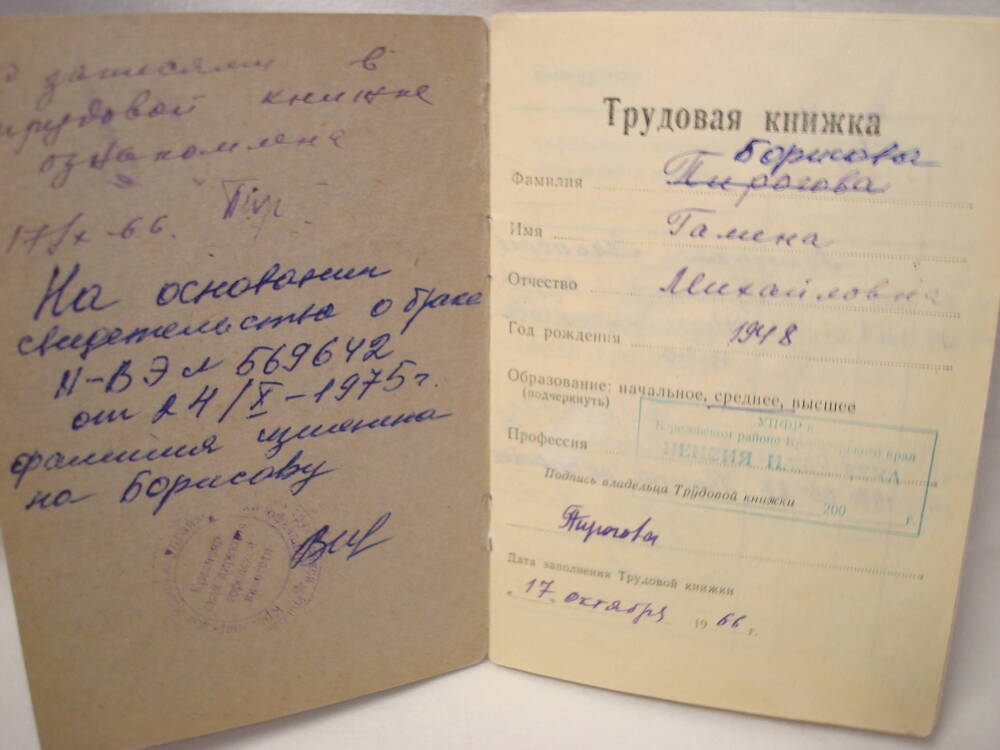 С записями в
трудовой книжке
ознакомлена
Пир.
17/X-66.
На основании
свидетельства о браке
II-ВЭ № 569642
от 24/X-1975г.
фамилия изменена
на Борисову
Трудовая книжка
Борисова
Фамилия Пирогова
Имя Галина
Отчество Михайловна
Год рождения 1948
Образование: начальное, среднее, высшее
(подчеркнуть)
УПФР в
Кореновском районе Краснодарского края
Профессия
ПЕНСИЯ НАЗНАЧЕНА
Подпись владельца Трудовой книжки
200 г.
Пирогова
Дата заполнения Трудовой книжки
"17" октября 1966 г.